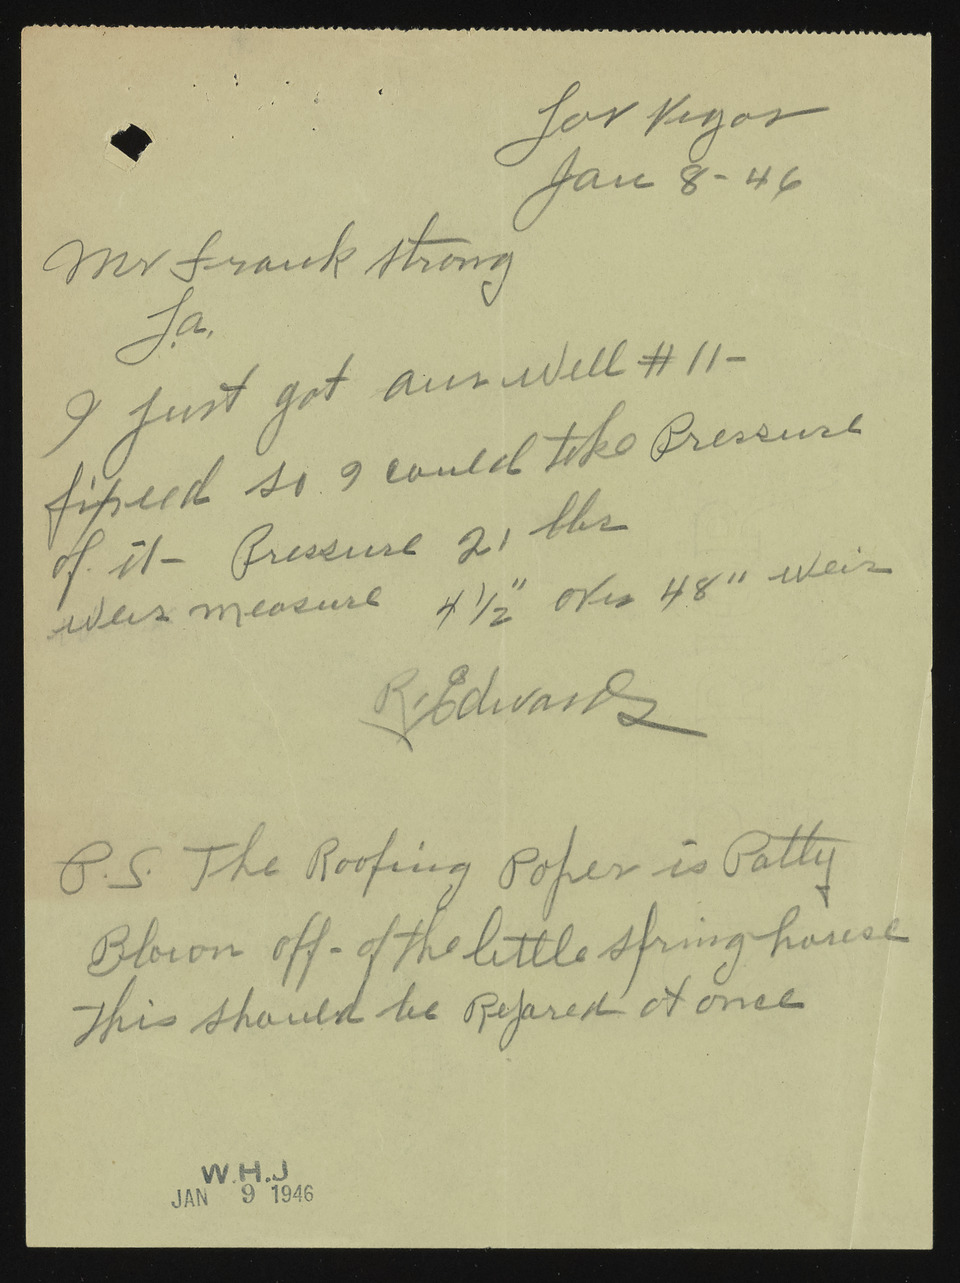 Las Vegas
Jan 8-46
Mr Frank Strong
L.a.
I just got our Well #11-
fixed so I could take Pressure
of it- Pressure 21 lbs
Weir measure 4 1/2" over 48" weir
R. Edwards
P.S. The Roofing Paper is Patty
Blown off- of the little spring house
This should be Repared at once
W.H.J
JAN 9 1946